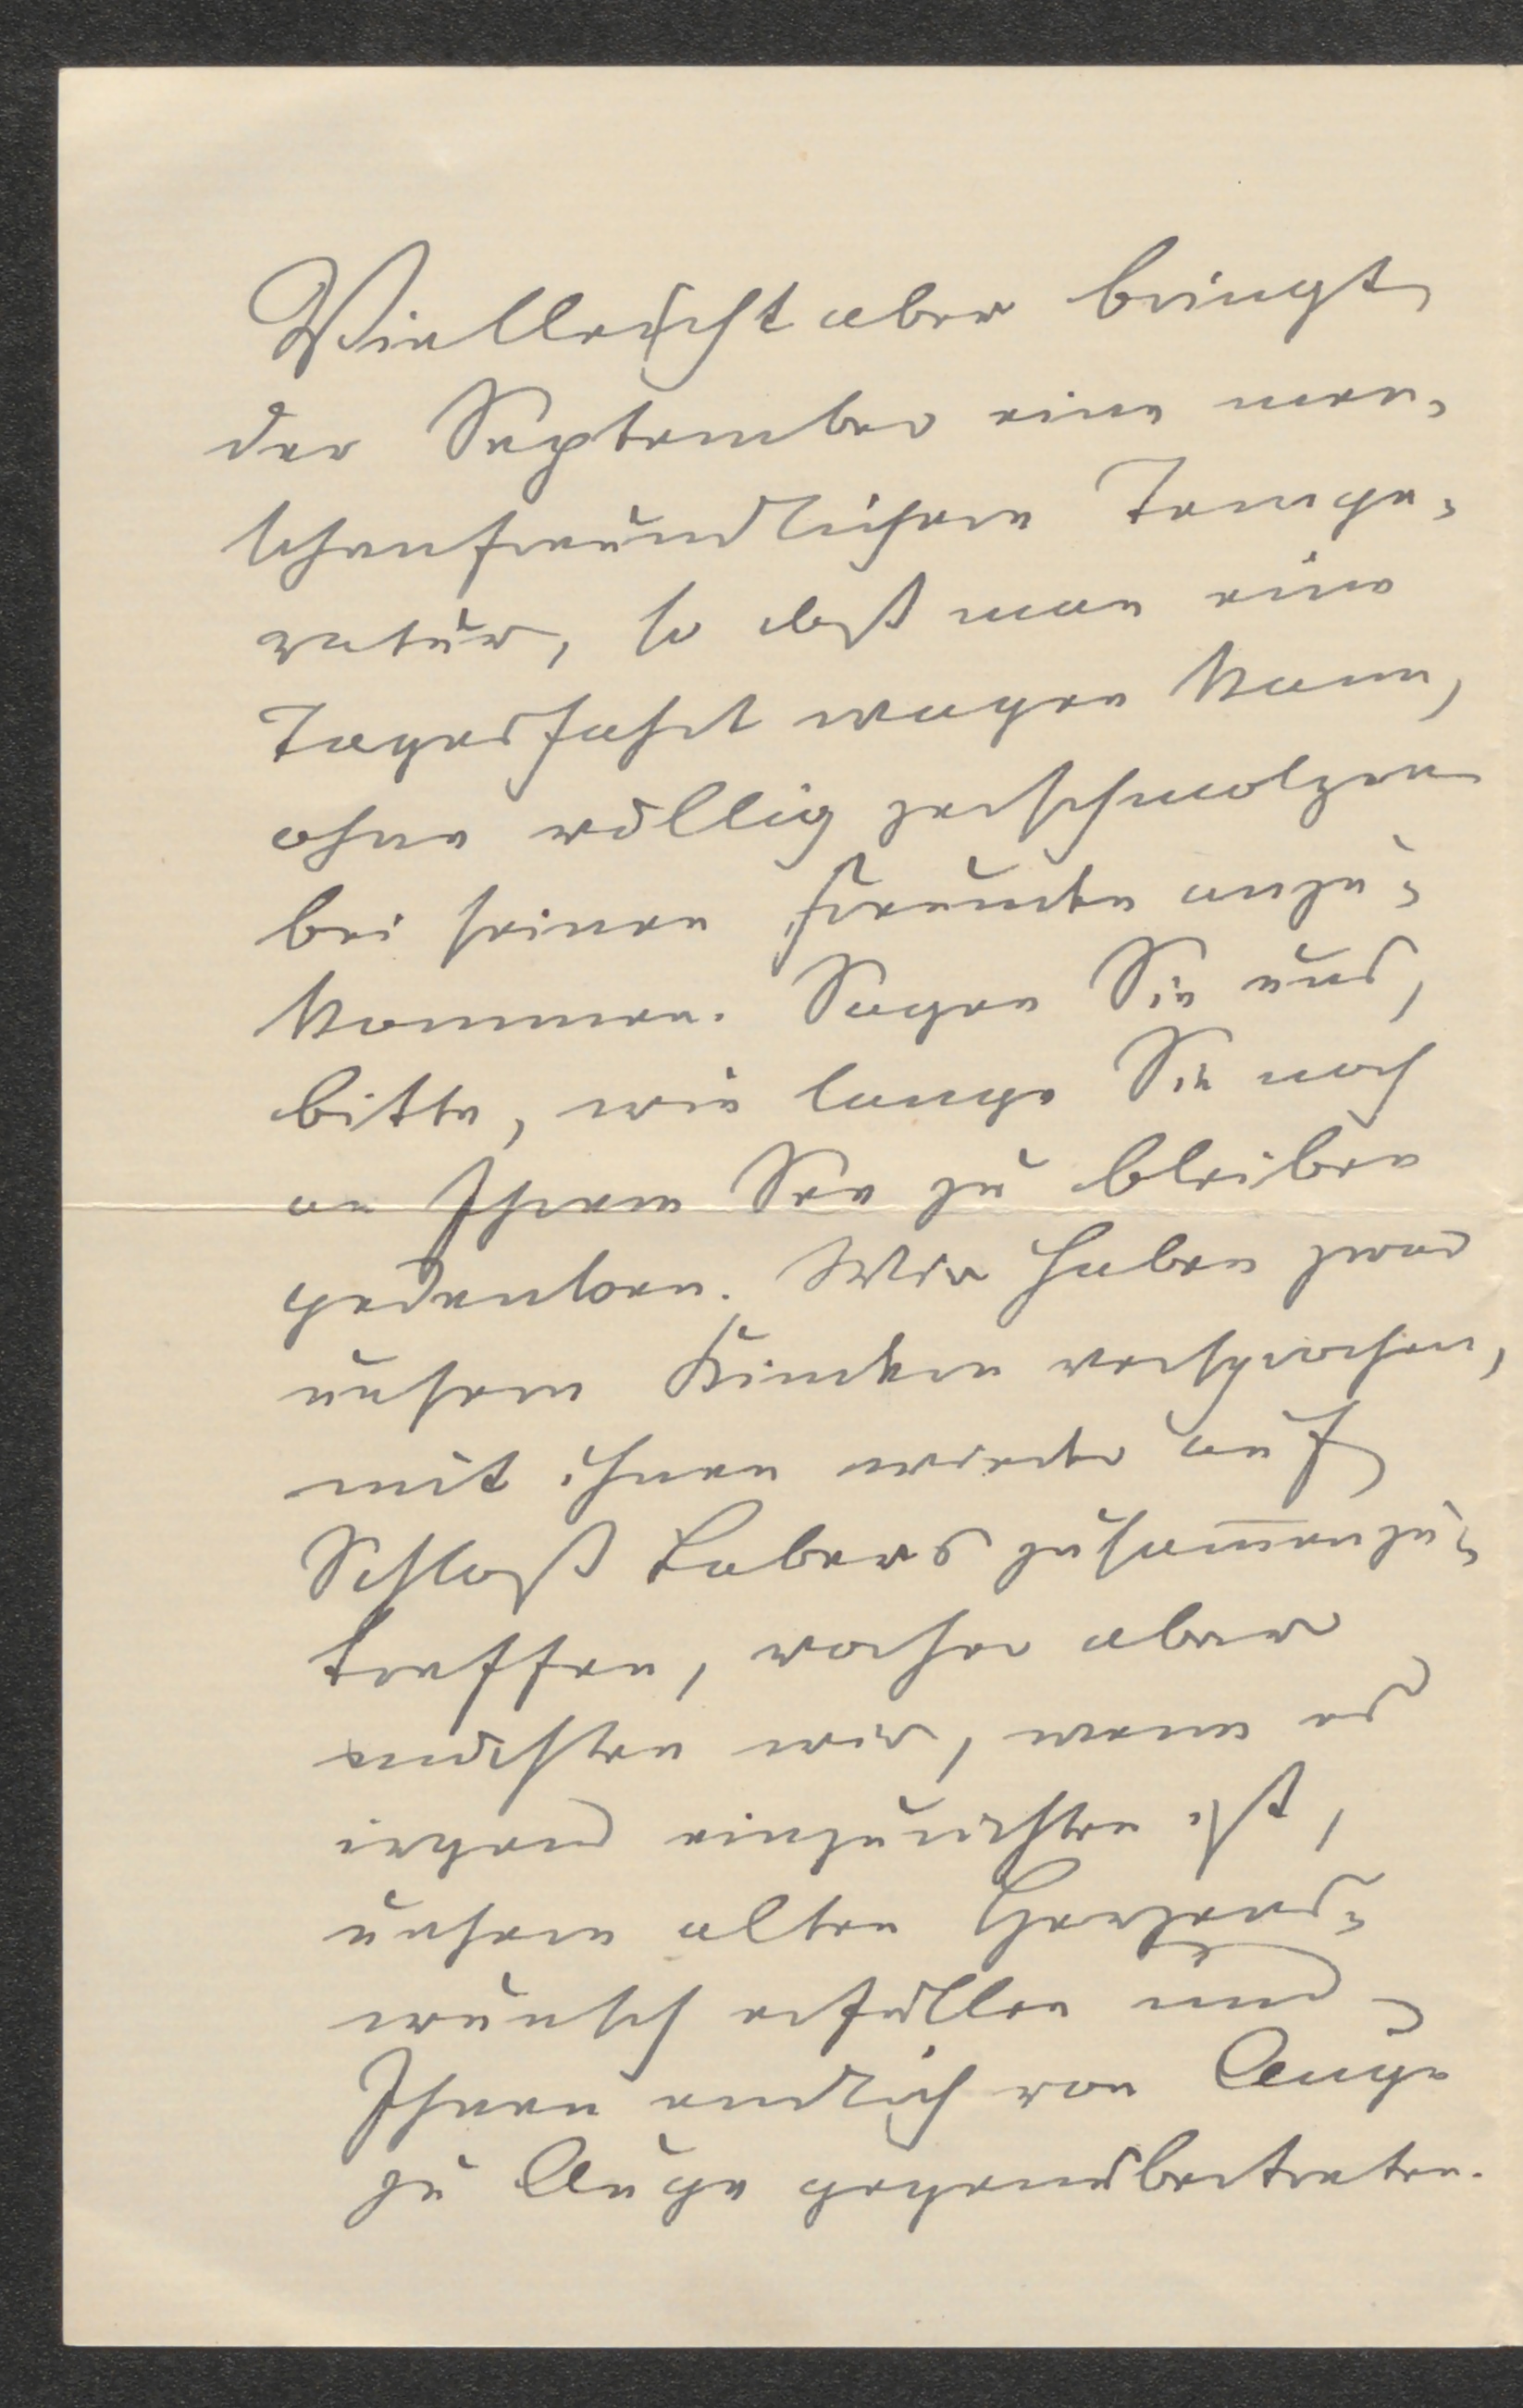 Vielleicht aber bringt
der September eine men-
schenfreundlichere Tempe-
ratur, so daß man eine
Tagesfahrt wagen kann,
ohne völlig zerschmolzen
bei seinen Freunden anzu-
kommen. Sagen Sie uns,
bitte, wie lange Sie noch
an Ihrem See zu bleiben
gedenken. Wir haben zwar
unsern Kindern versprochen,
mit ihnen wieder auf
Schloß Labers zusam̅enzu-
treffen, vorher aber
möchten wir, wenn es
irgend einzurichten ist,
unsern alten Herzens-
wunsch erfüllen und
Ihnen endlich von Auge
zu Auge gegenübertreten.